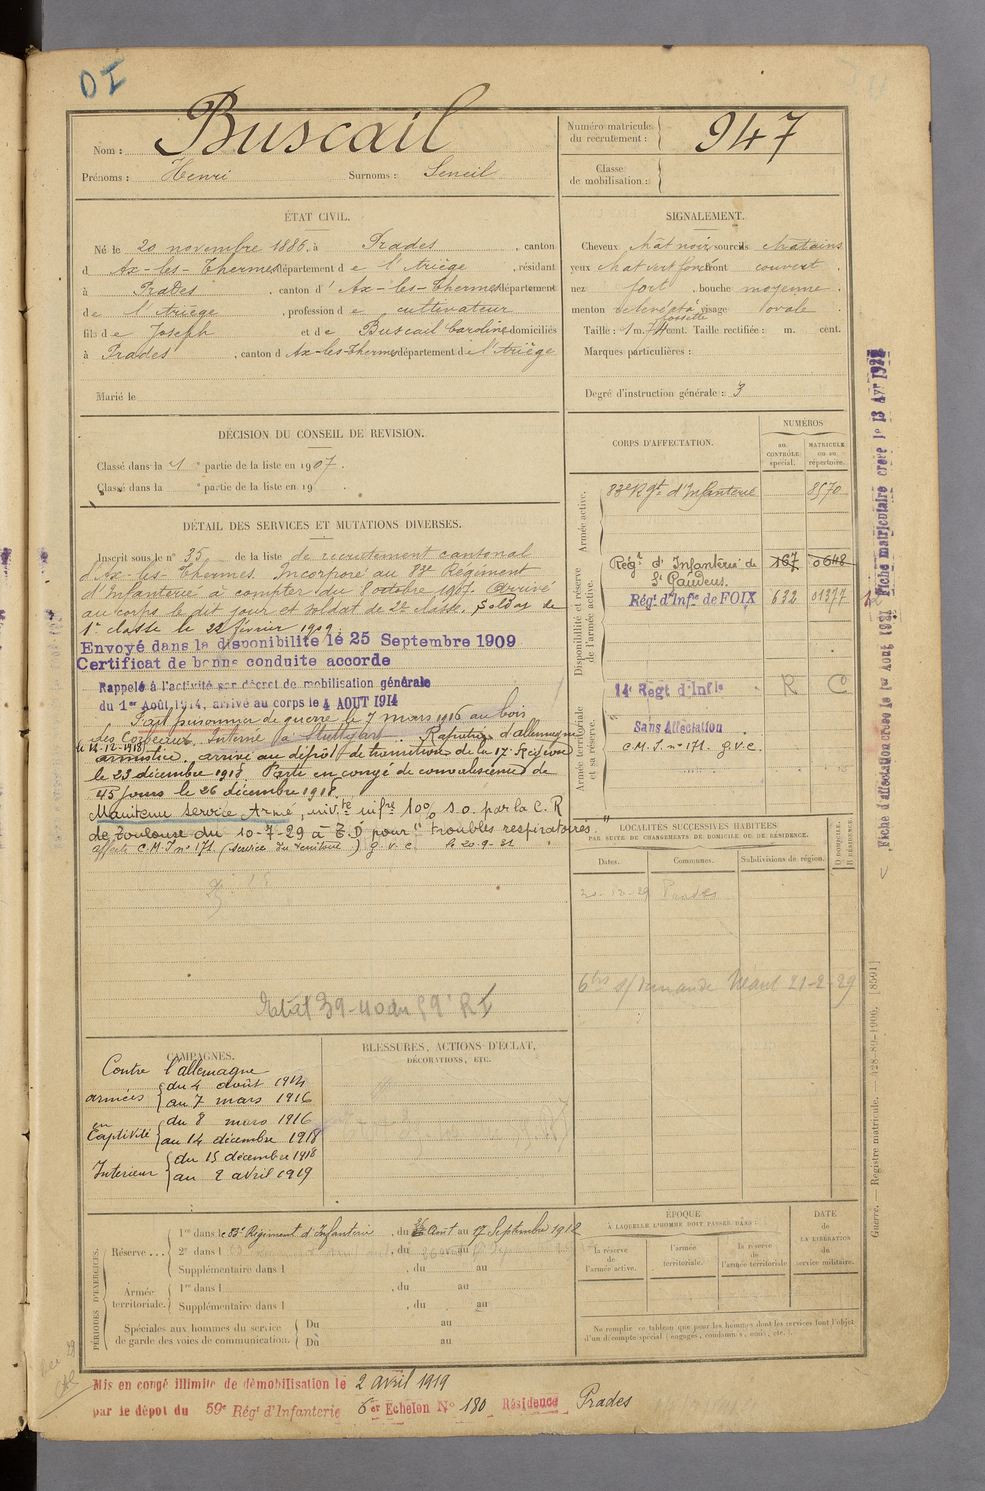 OI
Nom : Buscail
Prénoms : Henri Surnoms :
Numéro matricule du recrutement : 947
Classe de mobilisation :
ÉTAT CIVIL.
Né le 20 novembre 1886, à Prades, canton
d Ax-les-Thermes département de l'Ariège, résidant
à Prades, canton d' Ax-les-Thermes département
de l'Ariège, profession de cultivateur
fils de Joseph et de Buscail Caroline domiciliés
à Prades, canton d Ax-les-Thermes département de l'Ariège
Marié le
SIGNALEMENT.
Cheveux chât noir sourcils chatains
yeux chat vert foncé front couvert
nez fort, bouche moyenne
menton fossette visage ovale
Taille : 1 m. 74 cent. Taille rectifiée : m. cent.
Marques particulières :
Degré d'instruction générale : 3
DÉCISION DU CONSEIL DE REVISION.
Classé dans la 1 e partie de la liste en 1907.
Classé dans la e partie de la liste en 19
DÉTAIL DES SERVICES ET MUTATIONS DIVERSES.
Inscrit sous le n° 35 de la liste de recrutement cantonal
d'Ax-les-Thermes. Incorporé au 83e Régiment
d'Infanterie à compter du 8 octobre 1907. Arrivé
au corps le dit jour et soldat de 2e classe. Soldat de
1e classe le 22 février 1909.
Envoyé dans la disponibilité le 25 Septembre 1909
Certificat de bonne conduite accordé
Rappelé à l'activité par décret de mobilisation générale
du 1er Août 1914, arrivé au corps le 4 AOUT 1914
Fait prisonnier de guerre le 7 mars 1916 au bois
des Corbeaux. Interné à Stuttgart. Rapatrié d'allemagne
le 14-12-1918
armistice. arrivé au dépôt de transition de la 17e Région
le 23 décembre 1918. Parti en congé de convalescence de
45 jours le 26 décembre 1918.
Maintenu service Armé, inv.té infre 10% s.o. par la C. R
de Toulouse du 10-7-29 à T.D pour "troubles respiratoires"
affecté C.M.I n° 171. (service du territoire) g.v.c. le 20-9-31
Etat 39-40 du 59e RI
CORPS D'AFFECTATION.
NUMÉROS
au CONTRÔLE spécial.
MATRICULE ou au répertoire.
Armée active.
83e Rgt d'Infanterie 8570
Disponibilité et réserve de l'armée active.
Régt d'Infanterie de St Gaudens. 167 0648
Régt d'Infie de FOIX 632 01377
Armée territoriale et sa réserve.
14e Regt d'Infie R C
Sans Affectation
C.M.I. n° 171. g.v.c.
LOCALITÉS SUCCESSIVES HABITÉES
PAR SUITE DE CHANGEMENTS DE DOMICILE OU DE RÉSIDENCE.
Dates. Communes. Subdivisions de région. D DOMICILE. R RÉSIDENCE.
20-12-29 Prades
6 bis s/ demande 21-2-29
CAMPAGNES.
Contre l'allemagne
armées du 4 août 1914
au 7 mars 1916
en Captivité du 8 mars 1916
au 14 décembre 1918
Interieur du 15 décembre 1918
au 2 avril 1919
BLESSURES, ACTIONS D'ÉCLAT,
DÉCORATIONS, ETC.
PÉRIODES D'EXERCICES.
Réserve ... 1re dans le 83e Régiment d'Infanterie, du 26 Août au 17 Septembre 1912
2e dans l , du au
Supplémentaire dans l , du au
Armée territoriale. 1re dans l , du au
Supplémentaire dans l , du au
Spéciales aux hommes du service de garde des voies de communication. Du au
Du au
ÉPOQUE
À LAQUELLE L'HOMME DOIT PASSER DANS :
la réserve de l'armée active.
l'armée territoriale.
la réserve de l'armée territoriale
DATE de LA LIBÉRATION du service militaire.
Ne remplir ce tableau que pour les hommes dont les services font l'objet
d'un décompte spécial (engagés, condamnés, omis, etc.).
Mis en congé illimité de démobilisation le 2 avril 1919
par le dépôt du 59e Régt d'Infanterie 6er Echelon N° 180 Résidence Prades
Guerre. — Registre matricule. — 428-89-1906. [8501]
Fiche d'affectation créée le 1er Août 1931 Fiche matriculaire créée le 13 Avr